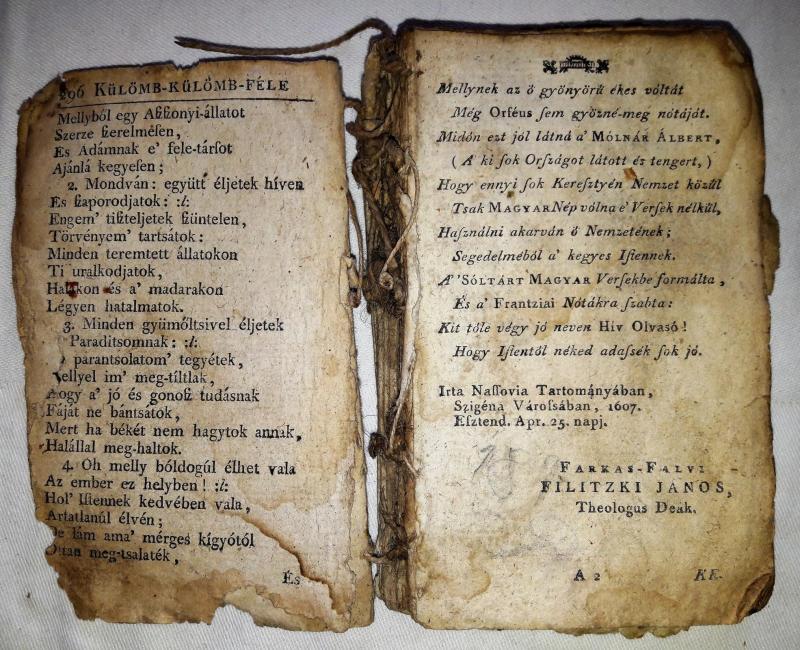 296 KÜLÖMB-KÜLÖMB-FÉLE
Mellyből egy Aſſzonyi-állatot
Szerze ſzerelméſen,
Es Adámnak e' fele-tárſot
Ajánlá kegyeſen;
2. Mondván: együtt éljetek híven
Es ſzaporodjatok: :/:
Engem' tiſzteljetek ſzüntelen,
Törvényem' tartsátok:
Minden teremtett állatokon
Ti uralkodjatok,
Halakon és a' madarakon
Légyen hatalmatok.
3. Minden gyümőltsivel éljetek
Paraditsomnak: :/:
parantsolatom' tegyétek,
Mellyel im' meg-tíltlak,
Hogy a' jó és gonoſz tudásnak
Fáját ne bántsátok,
Mert ha békét nem hagytok annak,
Halállal meg-haltok.
4. Oh melly bóldogúl élhet vala
Az ember ez helyben! :/:
Hol' Iſtennek kedvében vala,
Artatlanúl élvén;
De lám ama' mérges kígyótól
meg-tsalaték,
És
Mellynek az ő gyönyörű ékes vóltát
Még Orféus ſem győzné-meg nótáját.
Midőn ezt jól látná a' MÓLNÁR ÁLBERT,
( A' ki ſok Orſzágot látott és tengert, )
Hogy ennyi ſok Kereſztyén Nemzet közűl
Tsak MAGYAR Nép vólna e' Verſek nélkűl,
Haſználni akarván ő Nemzetének;
Segedelméből a' kegyes Iſtennek.
A' 'SÓLTÁRT MAGYAR Verſekbe formálta,
És a' Frantziai Nótákra ſzabta:
Kit tőle végy jó neven Hív Olvasó!
Hogy Iſtentől néked adaſsék ſok jó.
Irta Naſſovia Tartományában,
Szigéna Városában, 1607.
Eſztend. Apr. 25. napj.
FARKAS-FALVI
FILITZKI JÁNOS,
Theologus Deák.
A 2
KE-